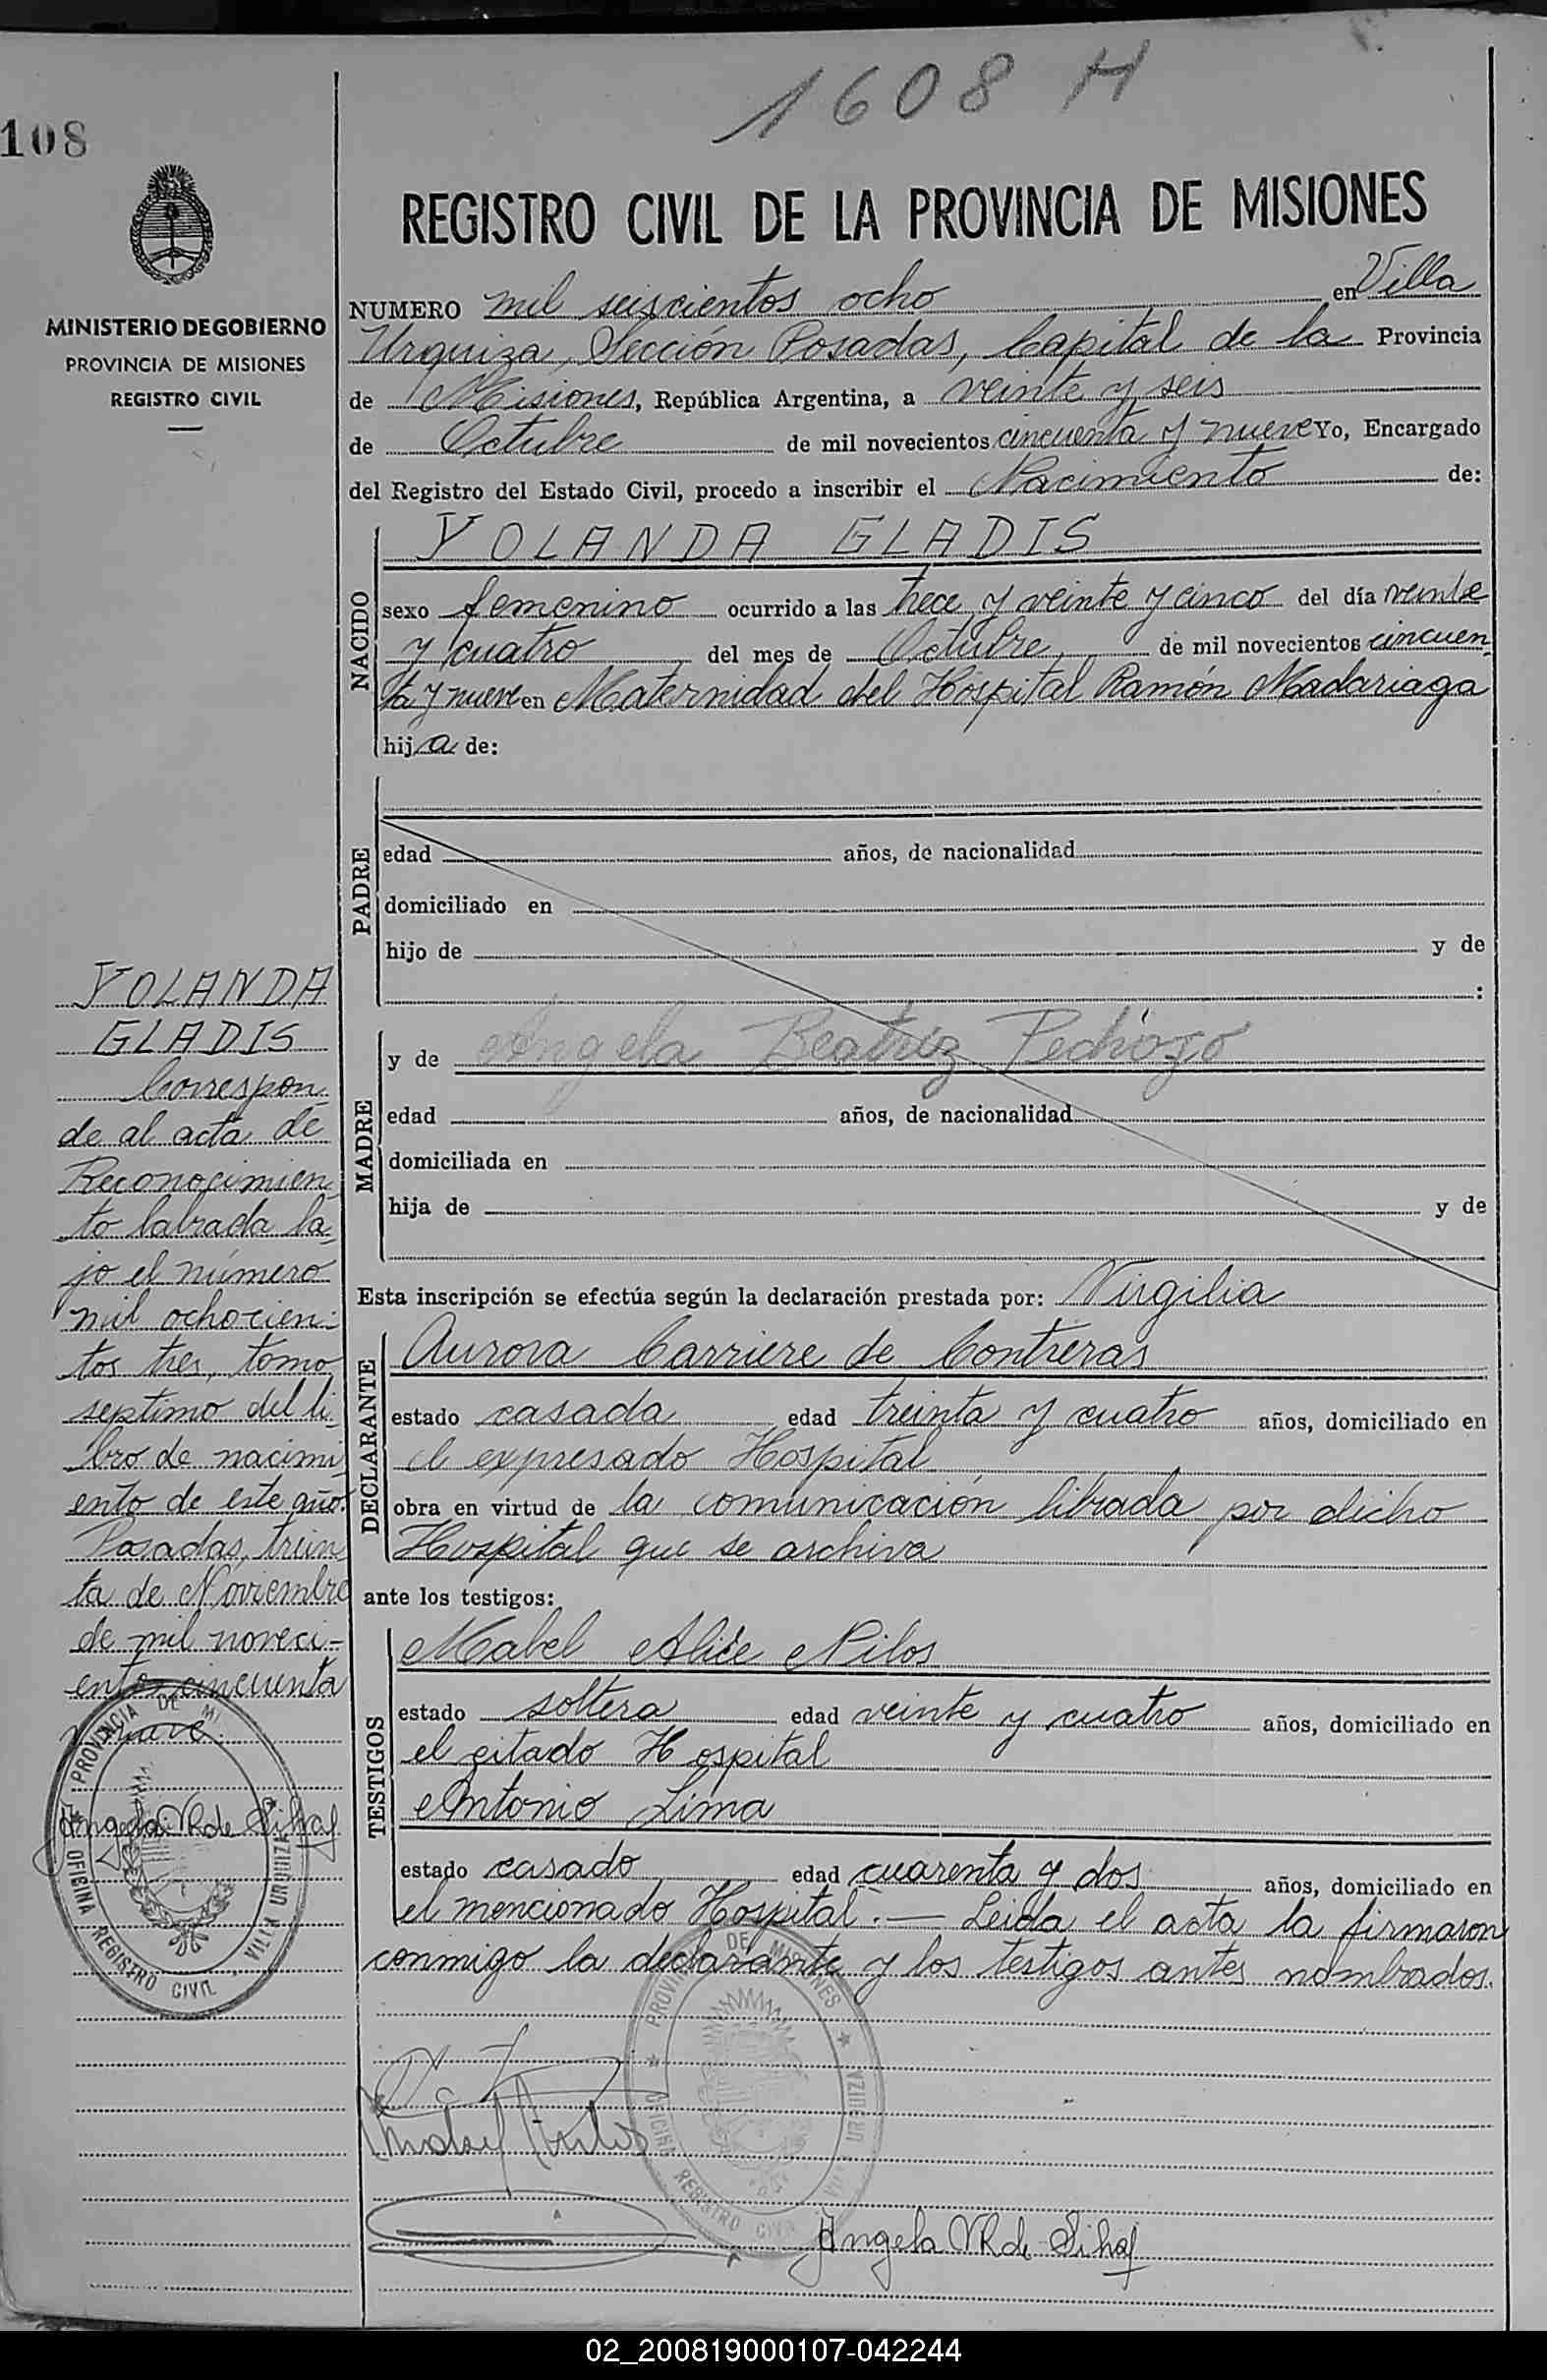 1608 H
108
MINISTERIO DE GOBIERNO
PROVINCIA DE MISIONES
REGISTRO CIVIL
REGISTRO CIVIL DE LA PROVINCIA DE MISIONES
NUMERO mil seiscientos ocho en Villa
Urquiza, Sección Posadas, Capital de la Provincia
de Misiones, República Argentina, a veinte y seis
de Octubre de mil novecientos cincuenta y nueve Yo, Encargado
del Registro del Estado Civil, procedo a inscribir el Nacimiento de:
NACIDO
YOLANDA GLADIS
sexo femenino ocurrido a las trece y veinte y cinco del día veinte
y cuatro del mes de Octubre, de mil novecientos cincuen
ta y nueve en Maternidad del Hospital Ramón Madariaga
hija de:
PADRE
edad años, de nacionalidad
domiciliado en
hijo de y de
:
MADRE
y de Angela Beatriz Pedrozo
edad años, de nacionalidad
domiciliada en
hija de y de
Esta inscripción se efectúa según la declaración prestada por: Virgilia
DECLARANTE
Aurora Carriere de Contreras
estado casada edad treinta y cuatro años, domiciliado en
el expresado Hospital
obra en virtud de la comunicación librada por dicho
Hospital que se archiva
ante los testigos:
TESTIGOS
Mabel Alice Nilos
estado soltera edad veinte y cuatro años, domiciliado en
el citado Hospital
Antonio Lima
estado casado edad cuarenta y dos años, domiciliado en
el mencionado Hospital. — Leida el acta la firmaron
conmigo la declarante y los testigos antes nombrados.
PROVINCIA DE MISIONES
OFICINA REGISTRO CIVIL VILLA URQUIZA
Angela
YOLANDA
GLADIS
Correspon
de al acta de
Reconocimien
to labrada ba
jo el número
mil ochocien
tos tres, tomo
septimo del li
bro de nacimi
ento de este año.
Posadas, trein
ta de Noviembre
de mil noveci-
entos cincuenta
y nueve.
PROVINCIA DE MI
OFICINA REGISTRO CIVIL VILLA URQUIZA
Angela
02_200819000107-042244